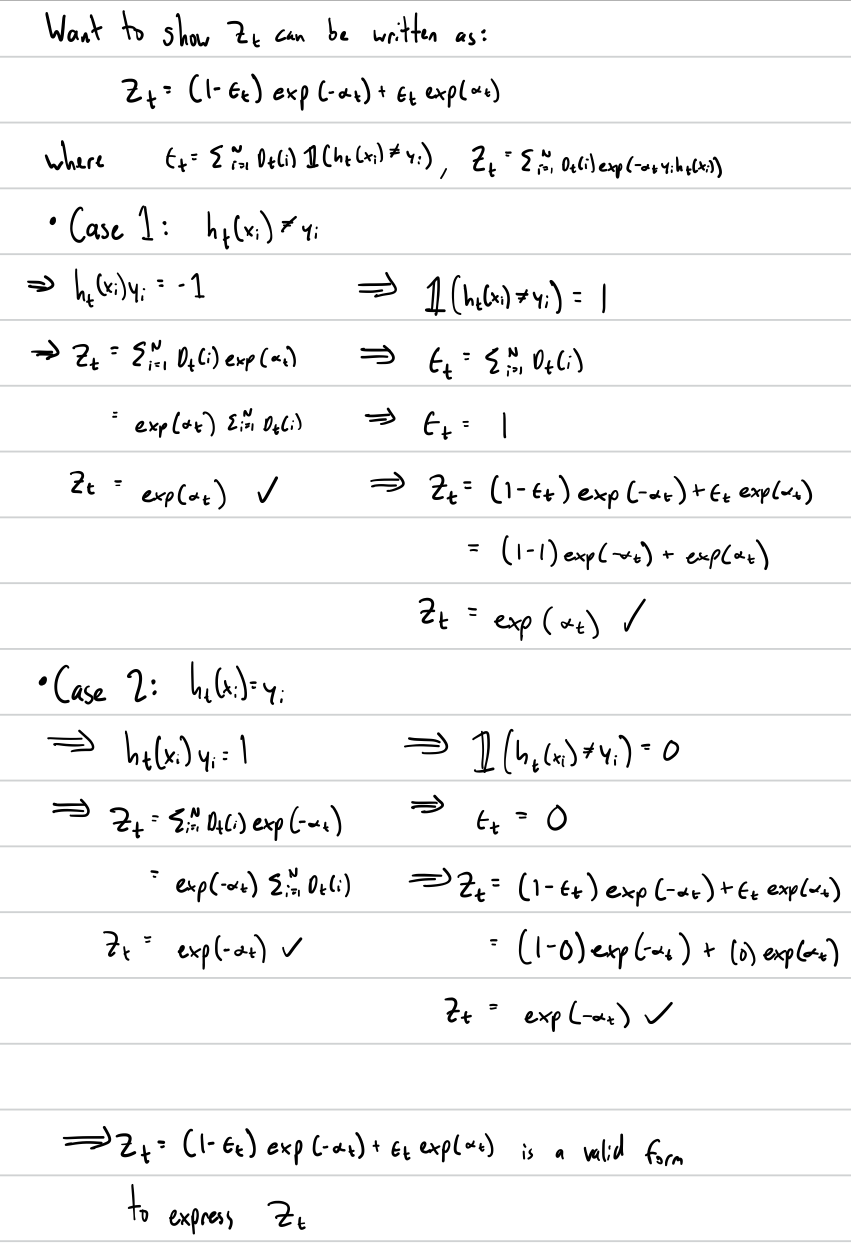 Want to show Z_t can be written as:
Z_t = (1-ϵ_t) exp(-α_t) + ϵ_t exp(α_t)
where ϵ_t = Σ_{i=1}^N D_t(i) 𝟙(h_t(x_i) ≠ y_i), Z_t = Σ_{i=1}^N D_t(i) exp(-α_t y_i h_t(x_i))
• Case 1: h_t(x_i) ≠ y_i
⇒ h_t(x_i) y_i = -1 ⇒ 𝟙(h_t(x_i) ≠ y_i) = 1
⇒ Z_t = Σ_{i=1}^N D_t(i) exp(α_t) ⇒ ϵ_t = Σ_{i=1}^N D_t(i)
= exp(α_t) Σ_{i=1}^N D_t(i) ⇒ ϵ_t = 1
Z_t = exp(α_t) ✓ ⇒ Z_t = (1-ϵ_t) exp(-α_t) + ϵ_t exp(α_t)
= (1-1) exp(-α_t) + exp(α_t)
Z_t = exp(α_t) ✓
• Case 2: h_t(x_i) = y_i
⇒ h_t(x_i) y_i = 1 ⇒ 𝟙(h_t(x_i) ≠ y_i) = 0
⇒ Z_t = Σ_{i=1}^N D_t(i) exp(-α_t) ⇒ ϵ_t = 0
= exp(-α_t) Σ_{i=1}^N D_t(i) ⇒ Z_t = (1-ϵ_t) exp(-α_t) + ϵ_t exp(α_t)
Z_t = exp(-α_t) ✓ = (1-0) exp(-α_t) + (0) exp(α_t)
Z_t = exp(-α_t) ✓
⇒ Z_t = (1-ϵ_t) exp(-α_t) + ϵ_t exp(α_t) is a valid form
to express Z_t